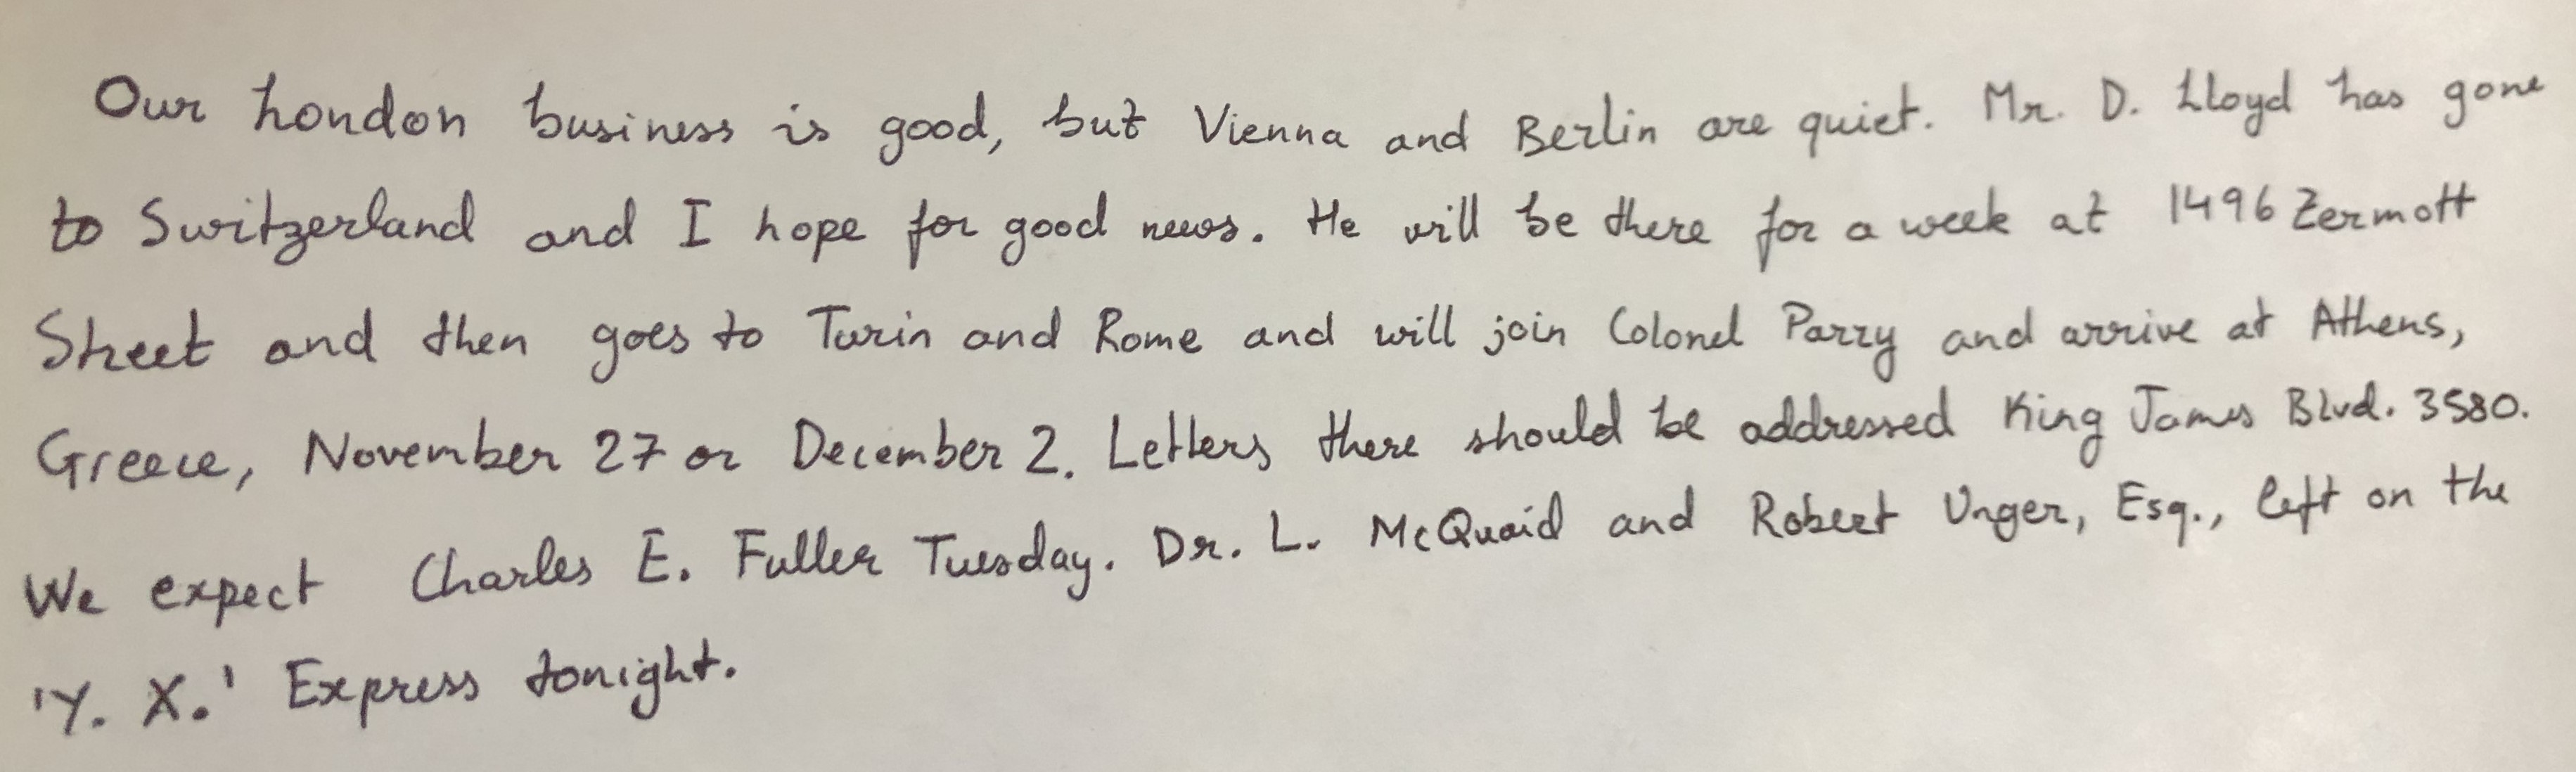 Our London business is good, but Vienna and Berlin are quiet. Mr. D. Lloyd has gone
to Switzerland and I hope for good news. He will be there for a week at 1496 Zermott
Street and then goes to Turin and Rome and will join Colonel Parry and arrive at Athens,
Greece, November 27 or December 2. Letters there should be addressed King James Blvd. 3580.
We expect Charles E. Fuller Tuesday. Dr. L. McQuaid and Robert Unger, Esq., left on the
'Y. X.' Express tonight.